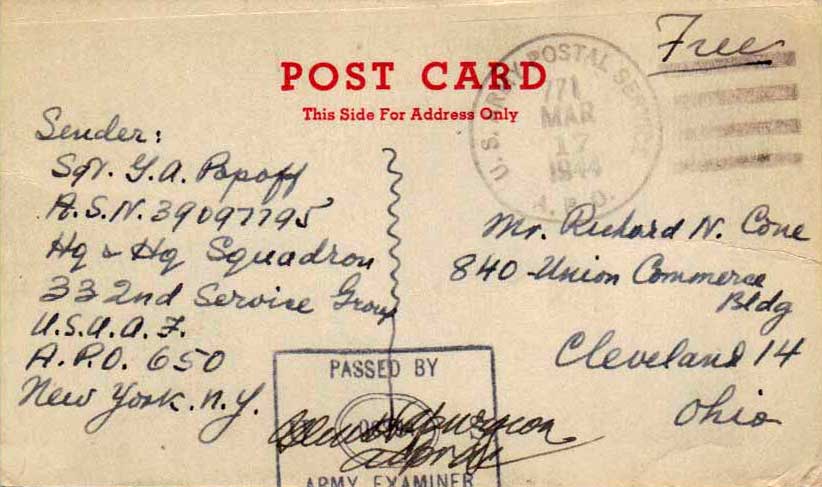 Free
POST CARD
This Side For Address Only
U.S. ARMY POSTAL SERVICE
771
MAR
17
1944
A.P.O.
Sender:
Sgt. G.A. Popoff
A.S.N. 39097795
Hq & Hq Squadron
332nd Service Group
U.S.A.A.F.
A.P.O. 650
New York. N.Y.
Mr. Richard N. Cone
840 - Union Commerce
Bldg
Cleveland 14
Ohio
PASSED BY
ARMY EXAMINER